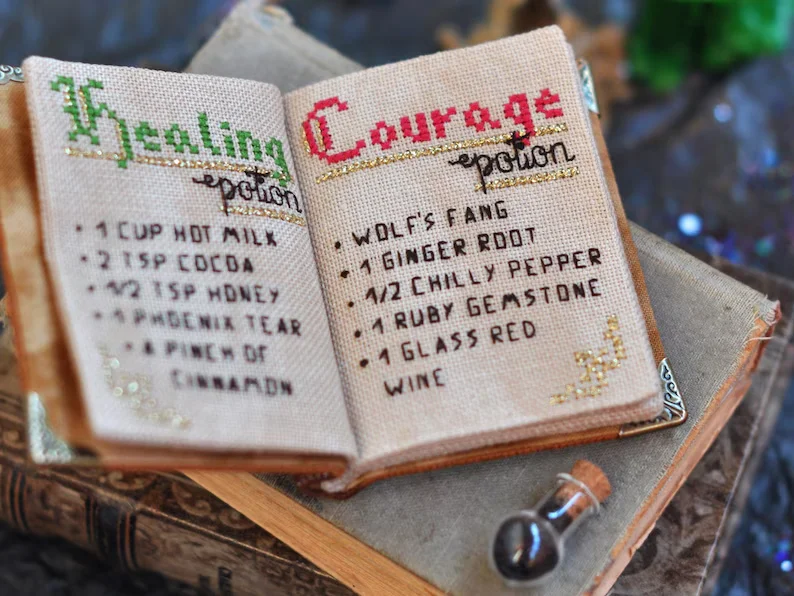 Healing
potion
• 1 CUP HOT MILK
• 2 TSP COCOA
• 1/2 TSP HONEY
• 1 PHOENIX TEAR
• A PINCH OF
CINNAMON
Courage
potion
• WOLF'S FANG
• 1 GINGER ROOT
• 1/2 CHILLY PEPPER
• 1 RUBY GEMSTONE
• 1 GLASS RED
WINE